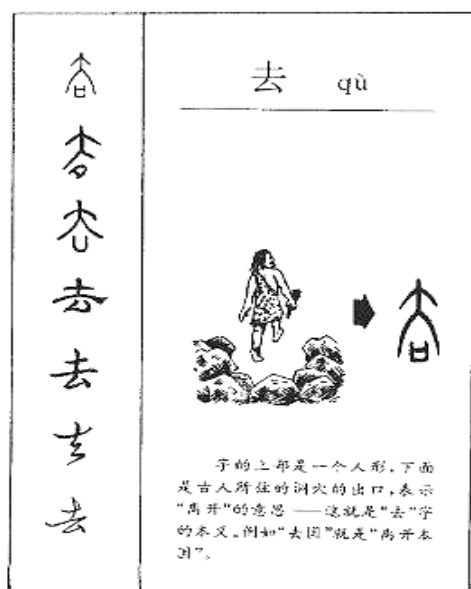 去 qù
字的上部是一个人形，下面
是古人所住的洞穴的出口，表示
“离开”的意思——这就是“去”字
的本义。例如“去国”就是“离开本
国”。
去
去
去
去